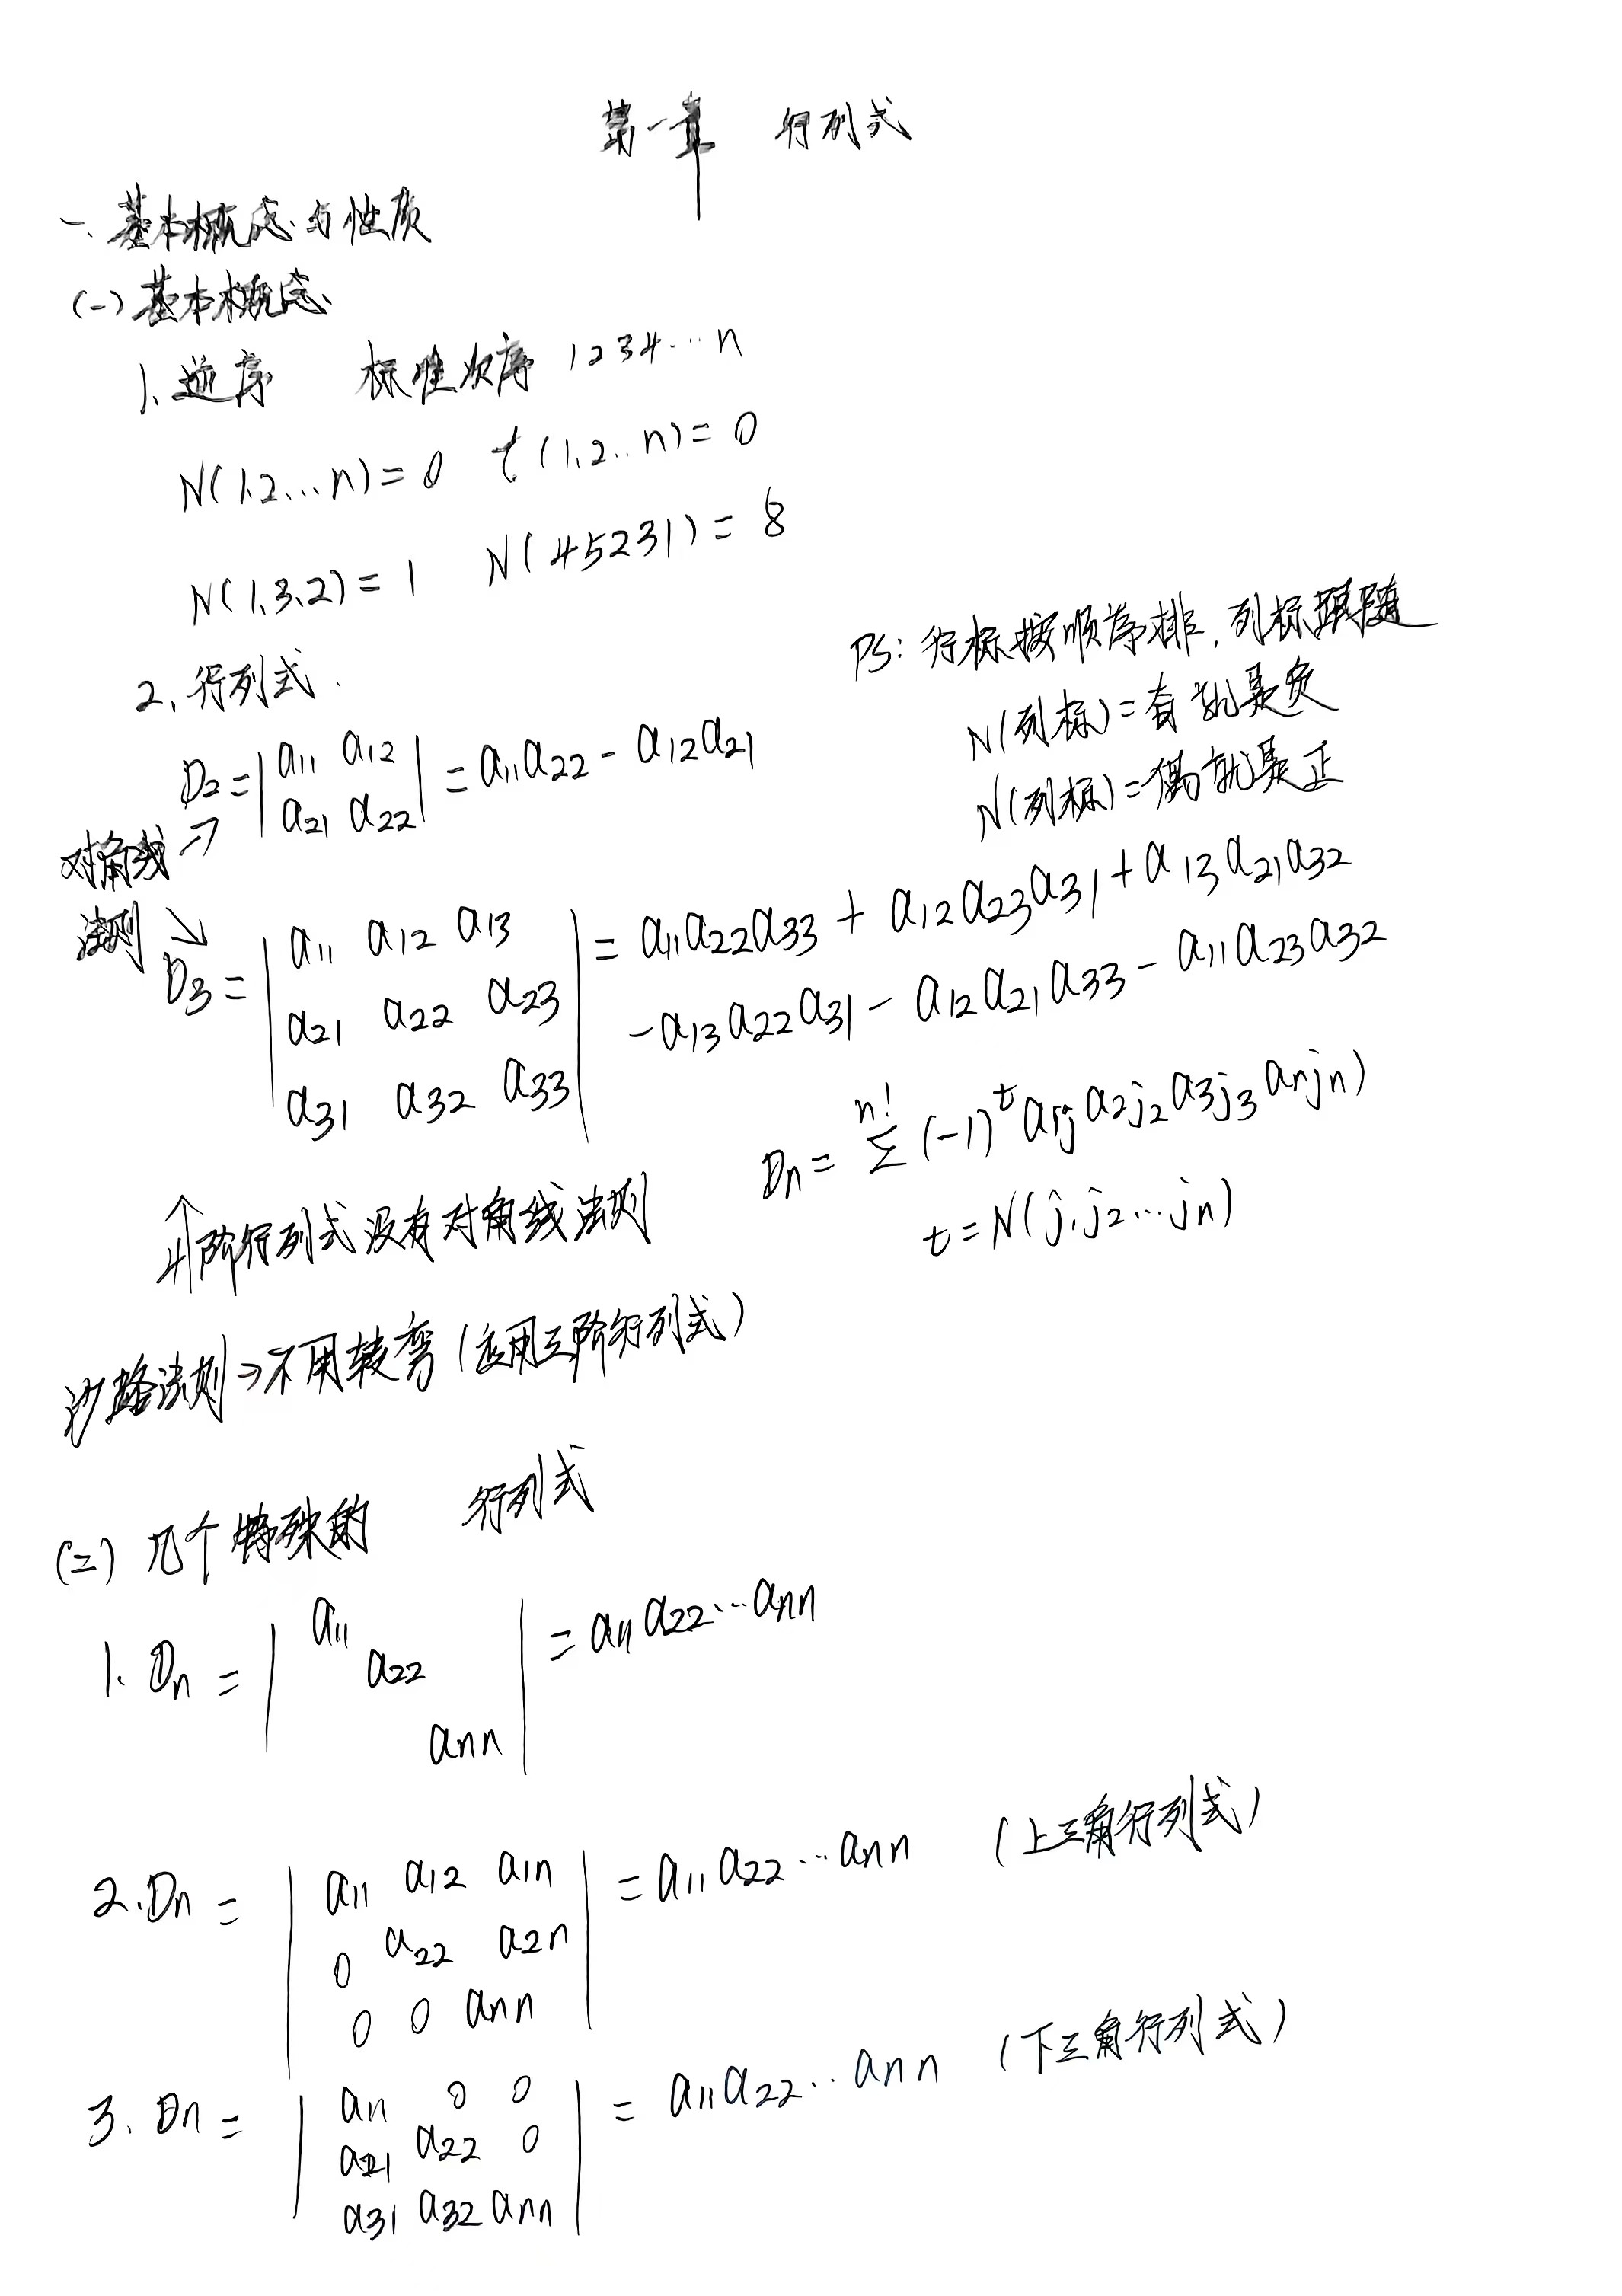 第一章 行列式
一、基本概念与性质
(一)基本概念
1、逆序 标准次序 1234…n
N(1.2…n)=0 t(1.2..n)=0
N(1.3.2)=1 N(45231)=8
PS:行标按顺序排,列标跟随
2、行列式.
N(列标)=奇就是负
D2=|a11 a12
a21 a22|=a11a22-a12a21
N(列标)=偶就是正
对角线
法则
D3=|a11 a12 a13
a21 a22 a23
a31 a32 a33|=a11a22a33+a12a23a31+a13a21a32
-a13a22a31-a12a21a33-a11a23a32
Dn=n!Σ(-1)^t a1j a2j2 a3j3 anjn)
t=N(j1j2…jn)
4阶行列式没有对角线法则
沙路法则⇒不用转弯(适用三阶行列式)
(二)几个特殊的 行列式
1.Dn=|a11
a22
ann|=a11a22…ann
2.Dn=|a11 a12 a1n
0 a22 a2n
0 0 ann|=a11a22…ann (上三角行列式)
3.Dn=|a11 0 0
a21 a22 0
a31 a32 ann|=a11a22..ann (下三角行列式)